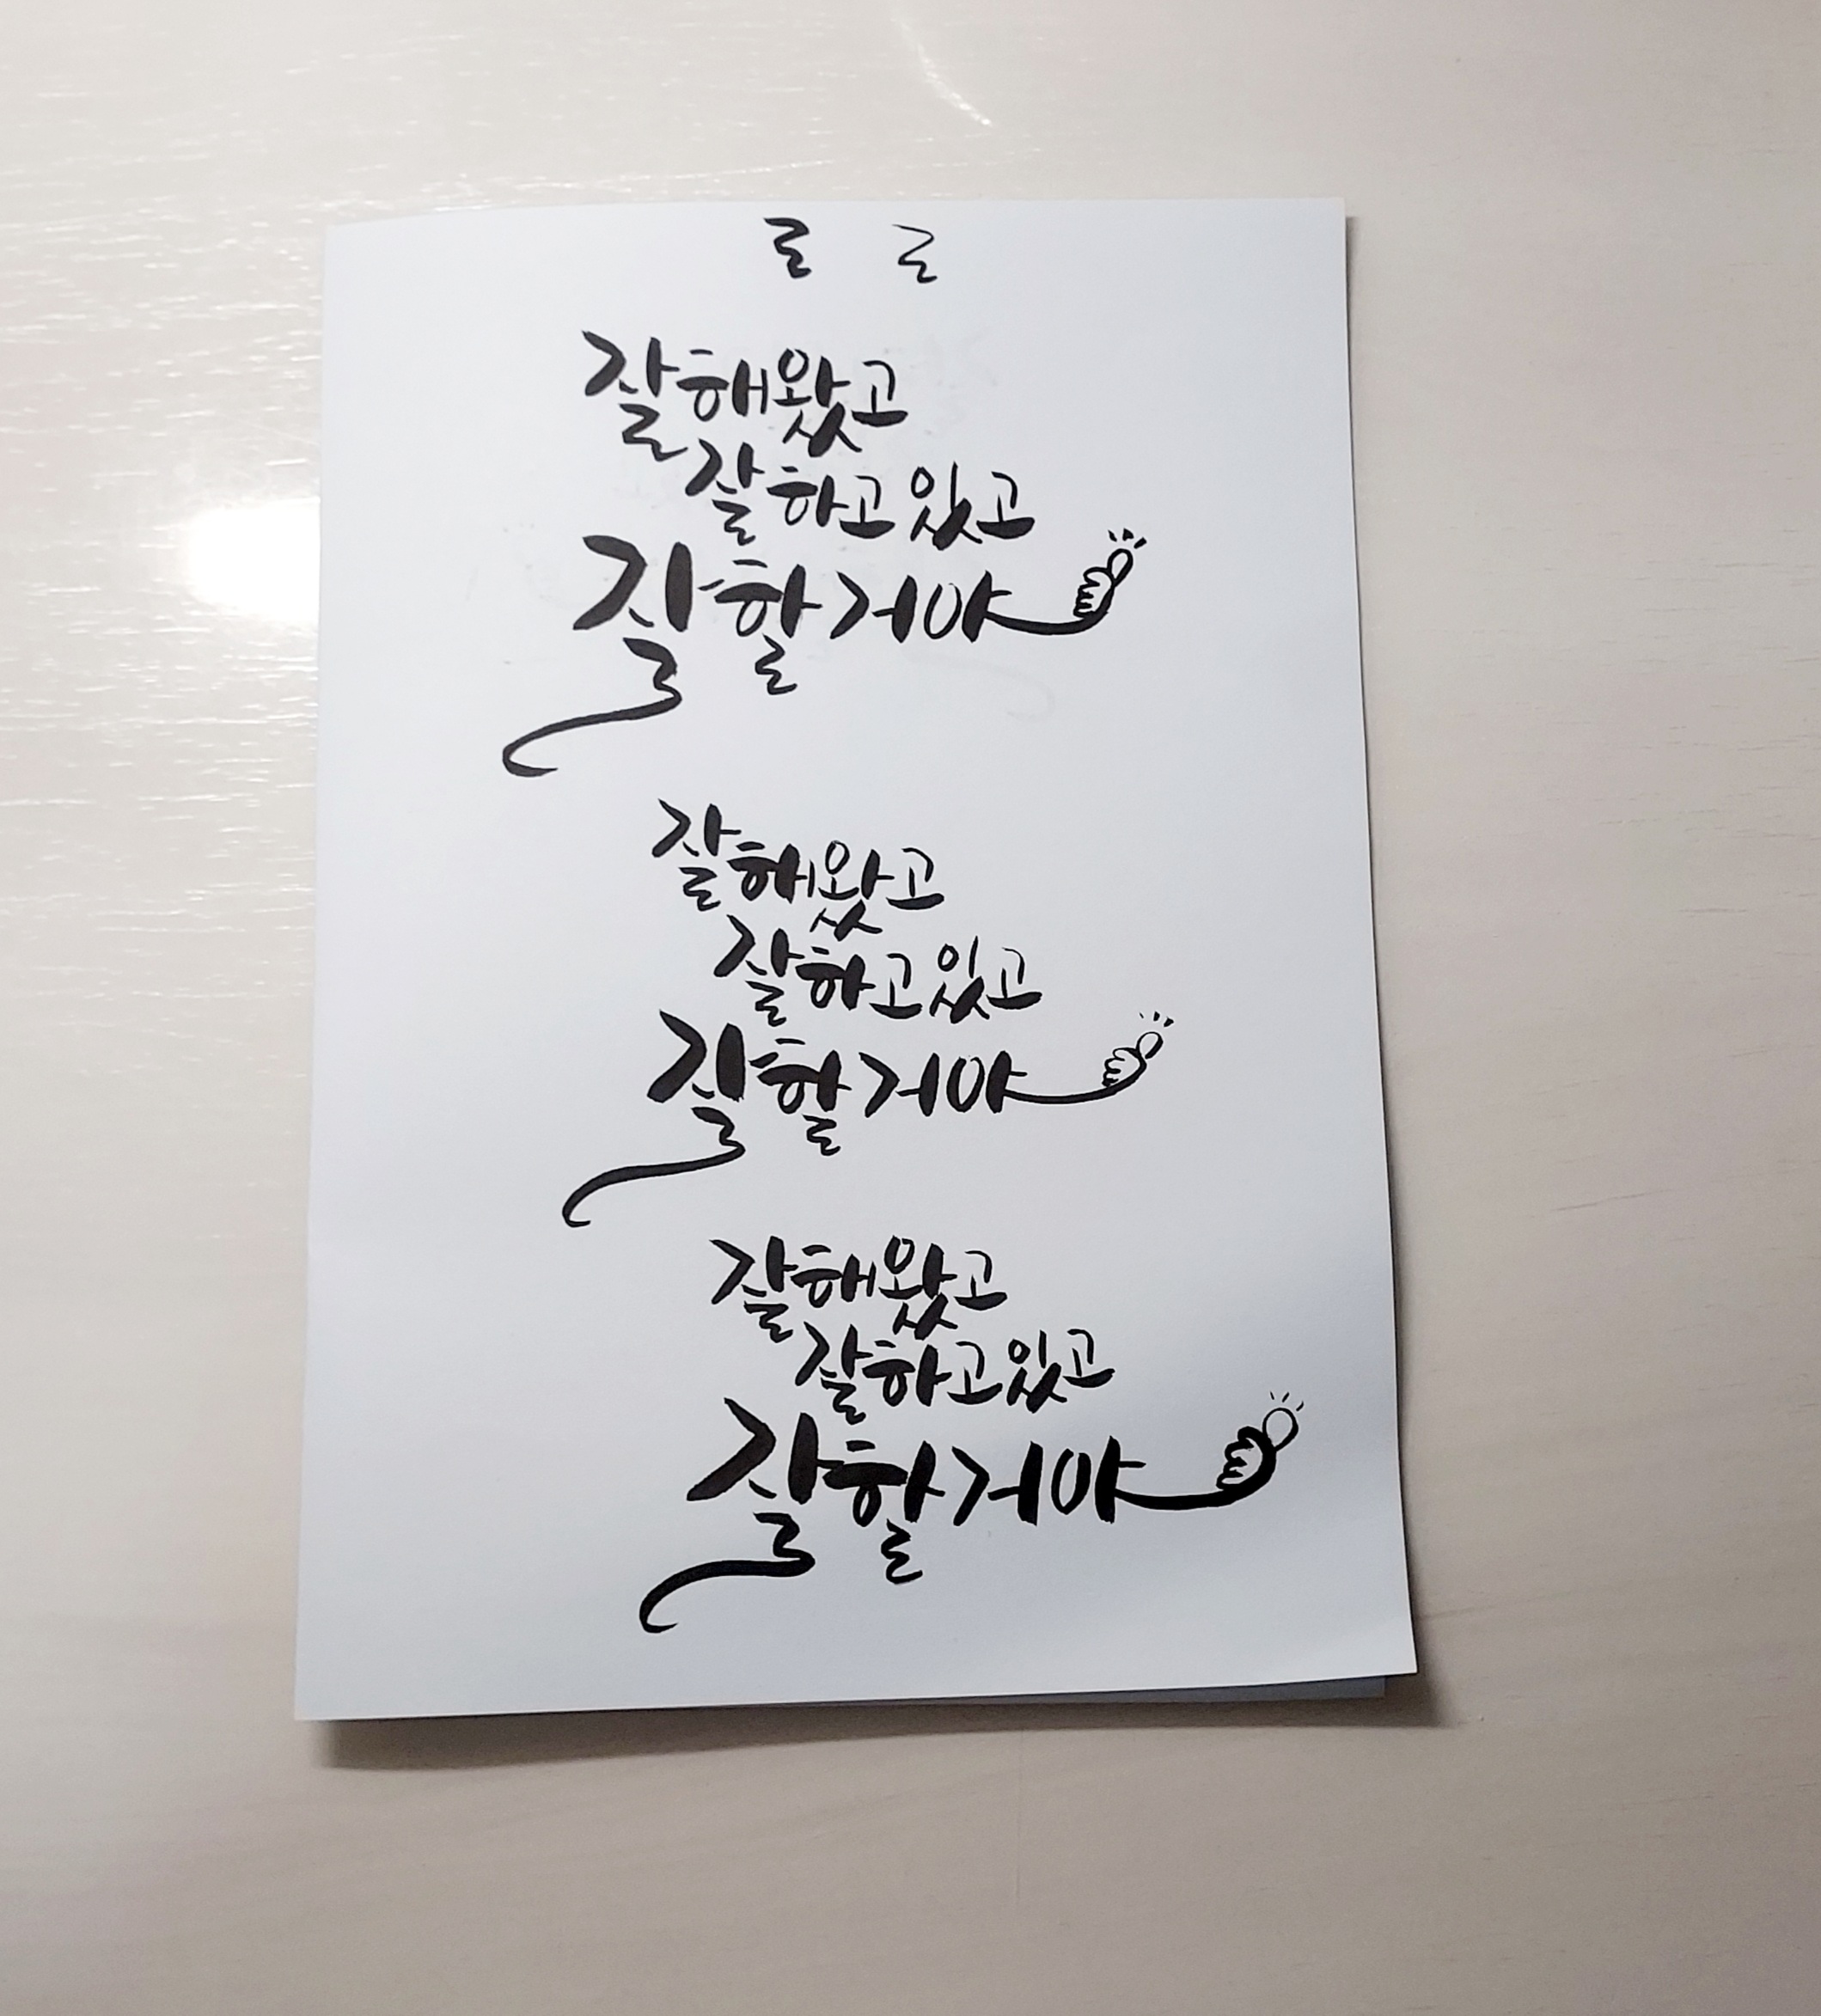 ㄹ ㄹ
잘해왔고
잘하고있고
잘할거야
잘해왔고
잘하고있고
잘할거야
잘해왔고
잘하고있고
잘할거야